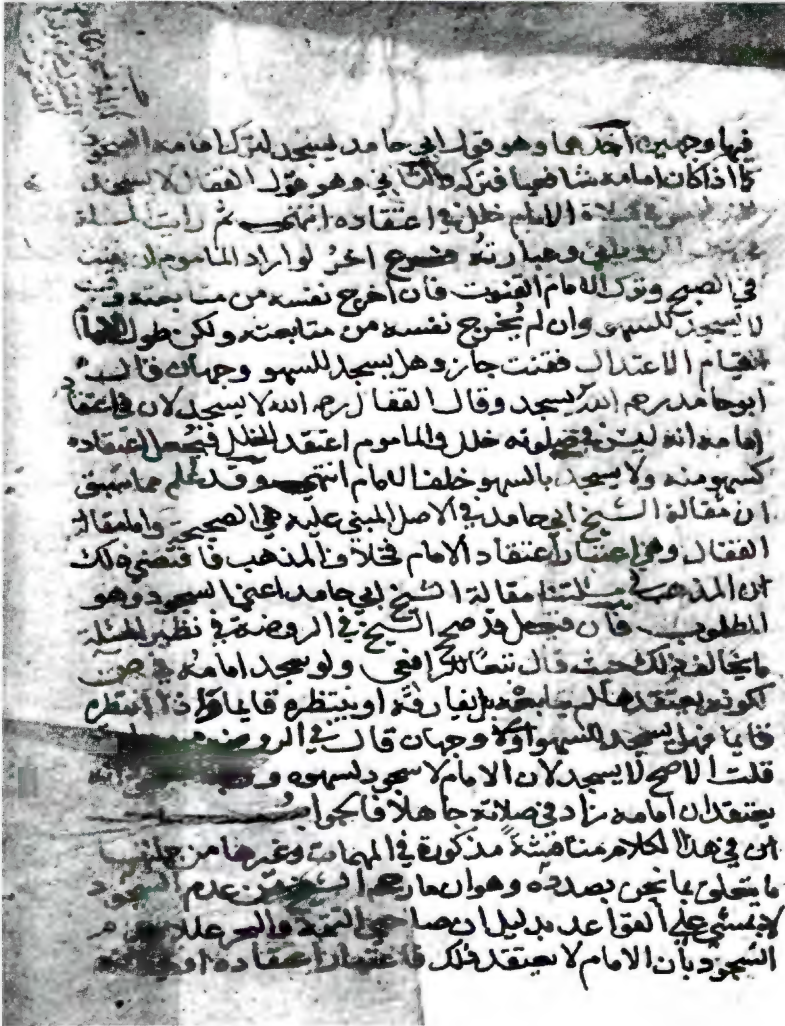 فيها وجهين احدهما وهو قول ابي حامد يسجد لترك امامه السجود
كما اذا كان امامه شافعيا فتركه والثاني وهو قول القفال لا يسجد
في صلاة الامام خلل في اعتقاده انتهى ثم رايت المسئلة
في وعبارته فرع اخر لو اراد الماموم ان يقنت
في الصبح وترك الامام القنوت فان اخرج نفسه من متابعته وقنت
لا يسجد للسهو وان لم يخرج نفسه من متابعته ولكن طول الامام
قيام الاعتدال فقنت جاز وهل يسجد للسهو وجهان قال
ابو حامد رحمه الله يسجد وقال القفال رحمه الله لا يسجد لان في اعتقاد
امامه انه ليس في صلوته خلل والماموم اعتقد الخلل فيجعل اعتقاده
كسهو منه ولا يسجد بالسهو خلف الامام انتهى وقد علم مما سبق
ان مقالة الشيخ ابي حامد في الاصل المبني عليه هي الصحيح واما مقالة
القفال وهي اعتبار اعتقاد الامام فخلاف المذهب فاقتضى ذلك
ان المذهب في مسئلتنا مقالة الشيخ ابي حامد اعني السجود وهو
المطلوب فان قيل قد صحح الشيخ في الروضة في نظير المسئلة
ما يخالف ذلك حيث قال تبعا للرافعي ولو سجد امامه في ص
لكونه يعتقدها لم يتابعه بل يفارقه او ينتظره قايما واذا انتظره
قايما فهل يسجد للسهو اولا وجهان قال في الروضة
قلت الاصح لا يسجد لان الامام لا سجود لسهوه و
يعتقد ان امامه زاد في صلاته جاهلا فالجواب
ان في هذا الكلام مناقشة مذكورة في المهمات وغيرها من جملتها
ما يتعلق بما نحن بصدده وهو ان ما رجحه الشيخ من عدم السجود
لا يمشي على القواعد بدليل ان صاحبي التتمة والبحر عللا عدم
السجود بان الامام لا يعتقد ذلك فاعتبار اعتقاده